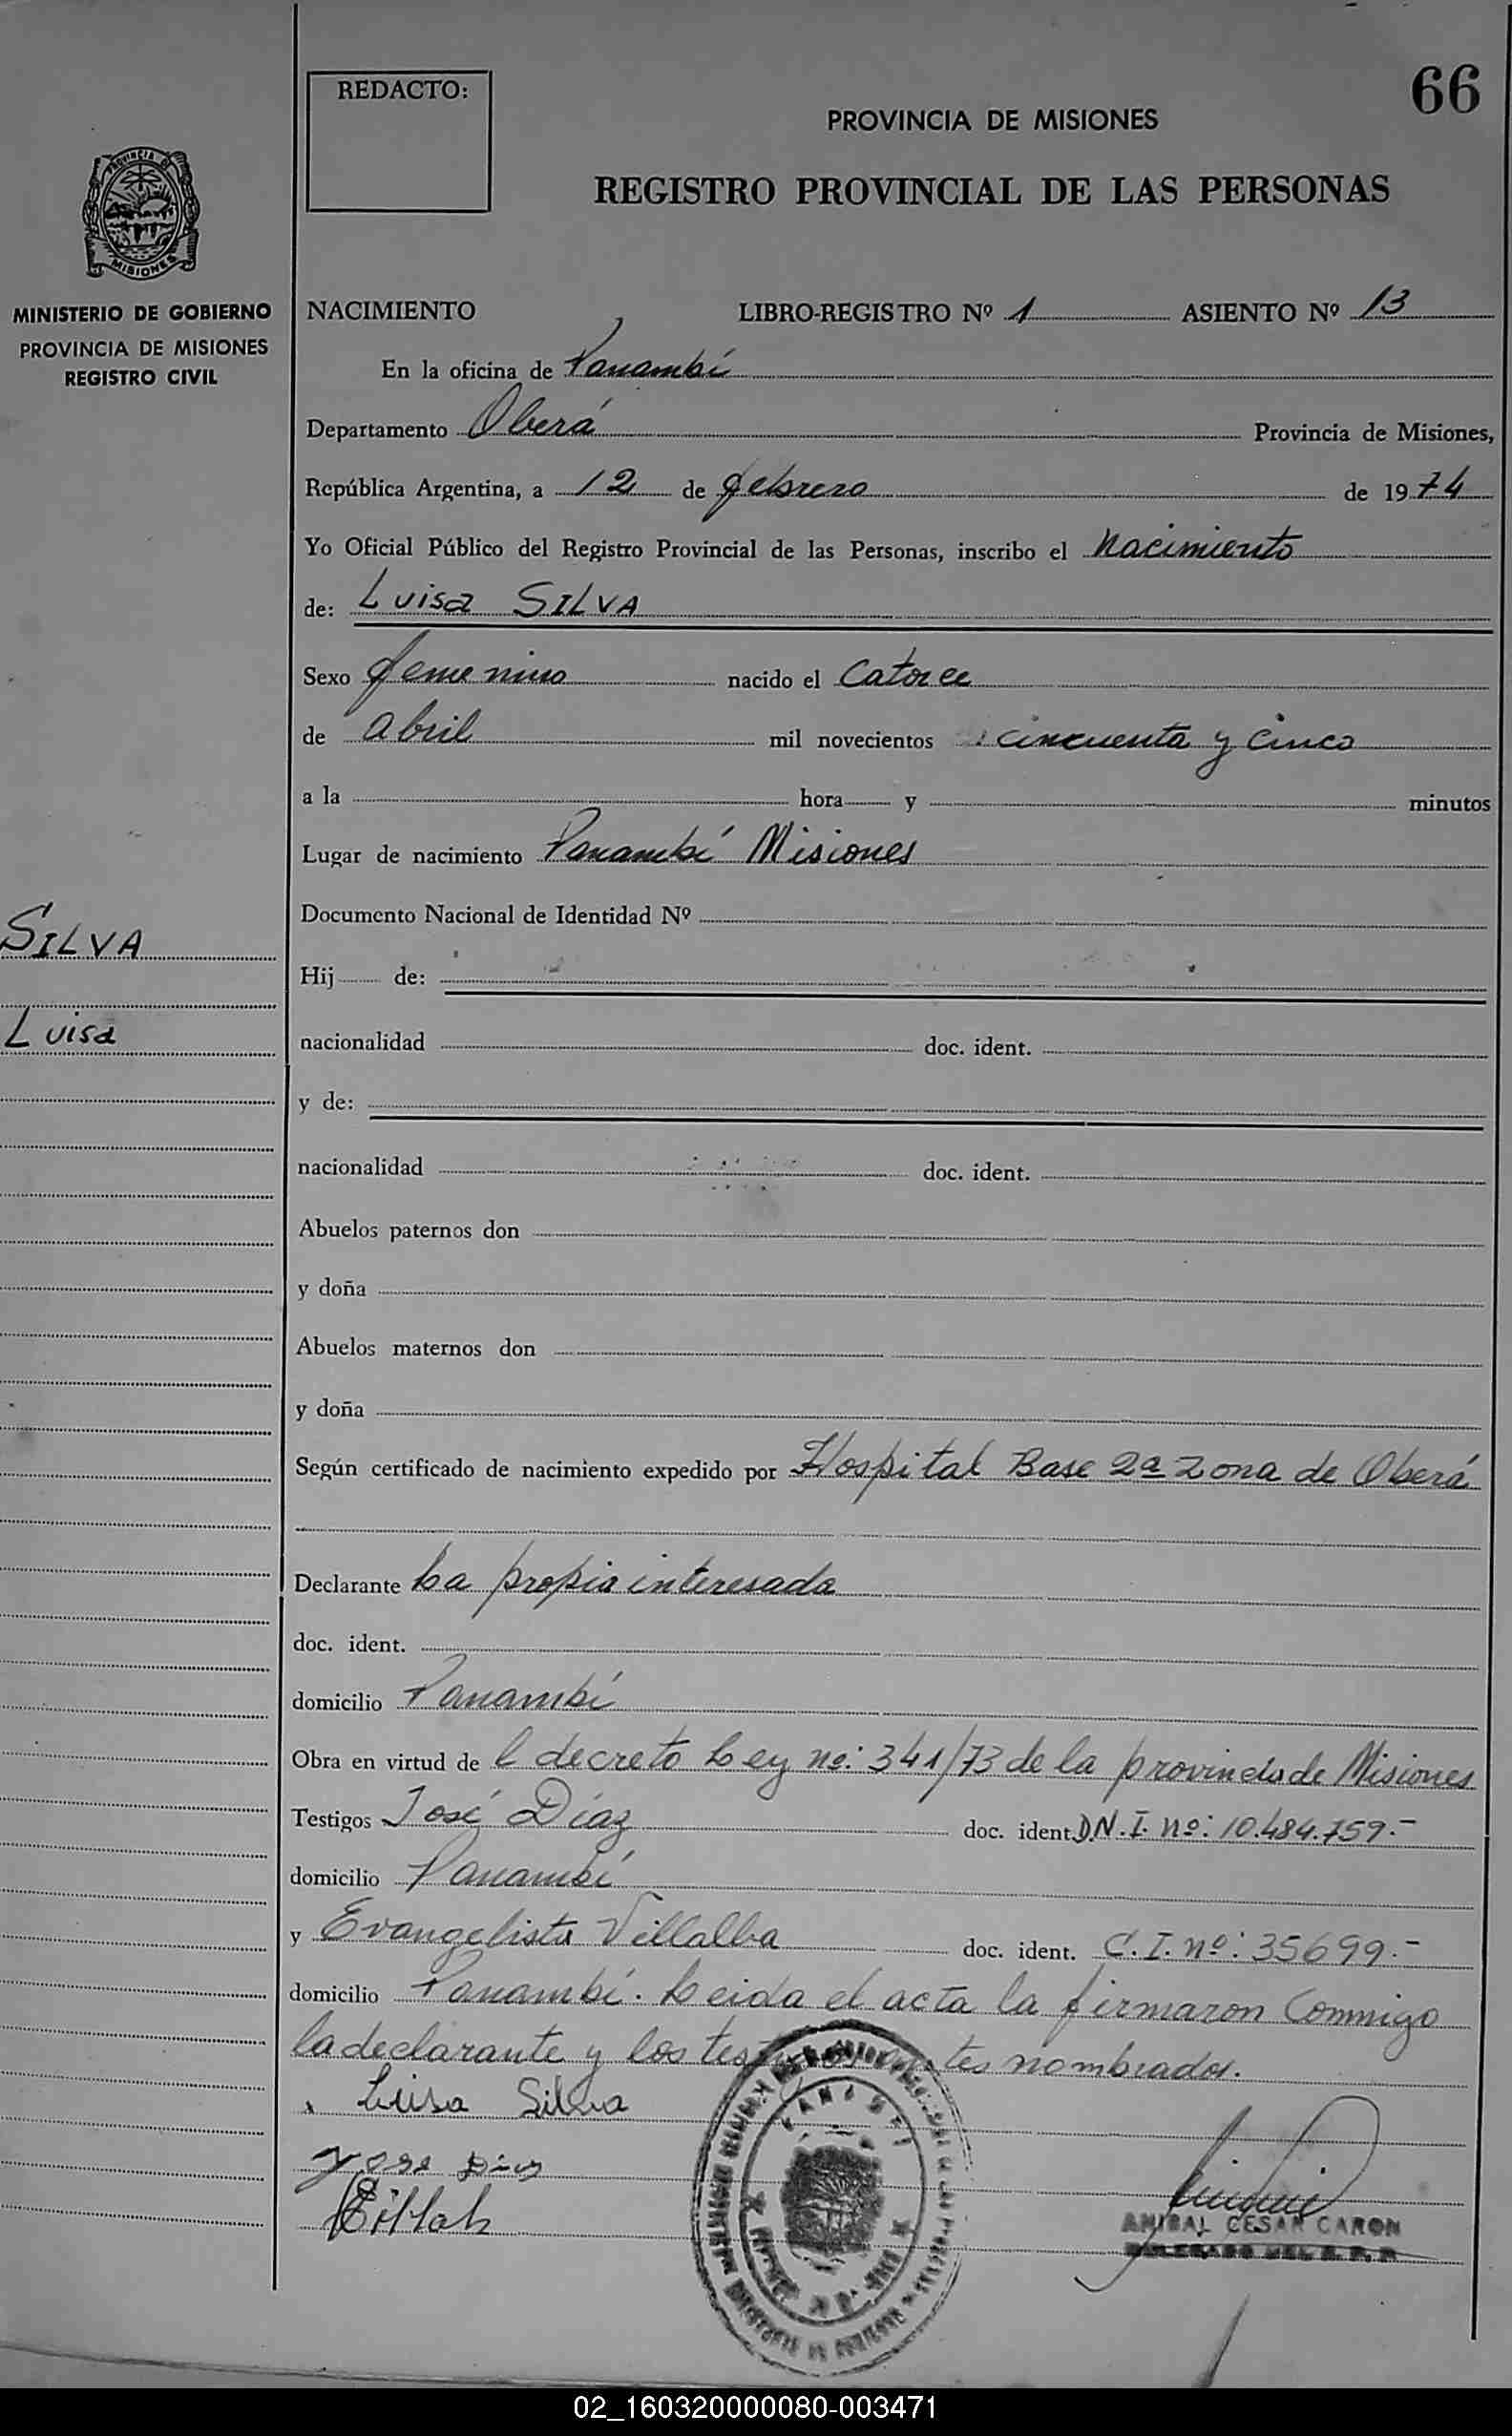 66
REDACTO:
PROVINCIA DE MISIONES
REGISTRO PROVINCIAL DE LAS PERSONAS
PROVINCIA DE
MISIONES
MINISTERIO DE GOBIERNO
PROVINCIA DE MISIONES
REGISTRO CIVIL
SILVA
Luisa
NACIMIENTO LIBRO-REGISTRO Nº 1 ASIENTO Nº 13
En la oficina de Panambí
Departamento Oberá Provincia de Misiones,
República Argentina, a 12 de febrero de 1974
Yo Oficial Público del Registro Provincial de las Personas, inscribo el nacimiento
de: Luisa SILVA
Sexo femenino nacido el Catorce
de abril mil novecientos cincuenta y cinco
a la hora y minutos
Lugar de nacimiento Panambí Misiones
Documento Nacional de Identidad Nº
Hij de:
nacionalidad doc. ident.
y de:
nacionalidad doc. ident.
Abuelos paternos don
y doña
Abuelos maternos don
y doña
Según certificado de nacimiento expedido por Hospital Base 2a Zona de Oberá
Declarante La propia interesada
doc. ident.
domicilio Panambí
Obra en virtud de l decreto Ley no: 341/73 de la provincia de Misiones
Testigos José Díaz doc. ident. D.N.I. no: 10.484.759.-
domicilio Panambí
y Evangelista Villalba doc. ident. C.I. no: 35699.-
domicilio Panambí. Leida el acta la firmaron Conmigo
la declarante y los nombrados.
Luisa Silva
Jose Dias
PANAMBI
ANIBAL CESAR CARON
DELEGADO DEL R. P. P.
02_160320000080-003471